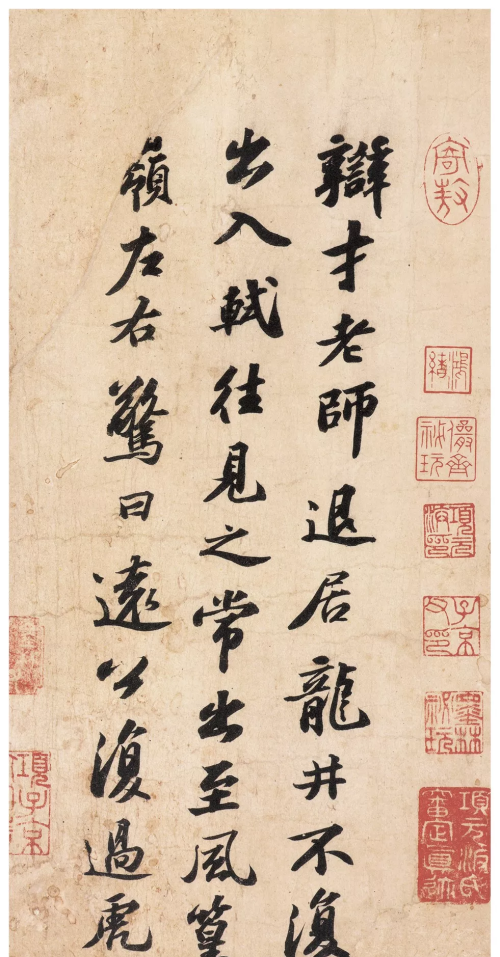 辯才老師退居龍井不復
出入軾往見之常出至風篁
嶺左右驚曰遠公復過虎
項元汴印
子京父印
墨林祕玩
項元汴氏審定真跡
項子京